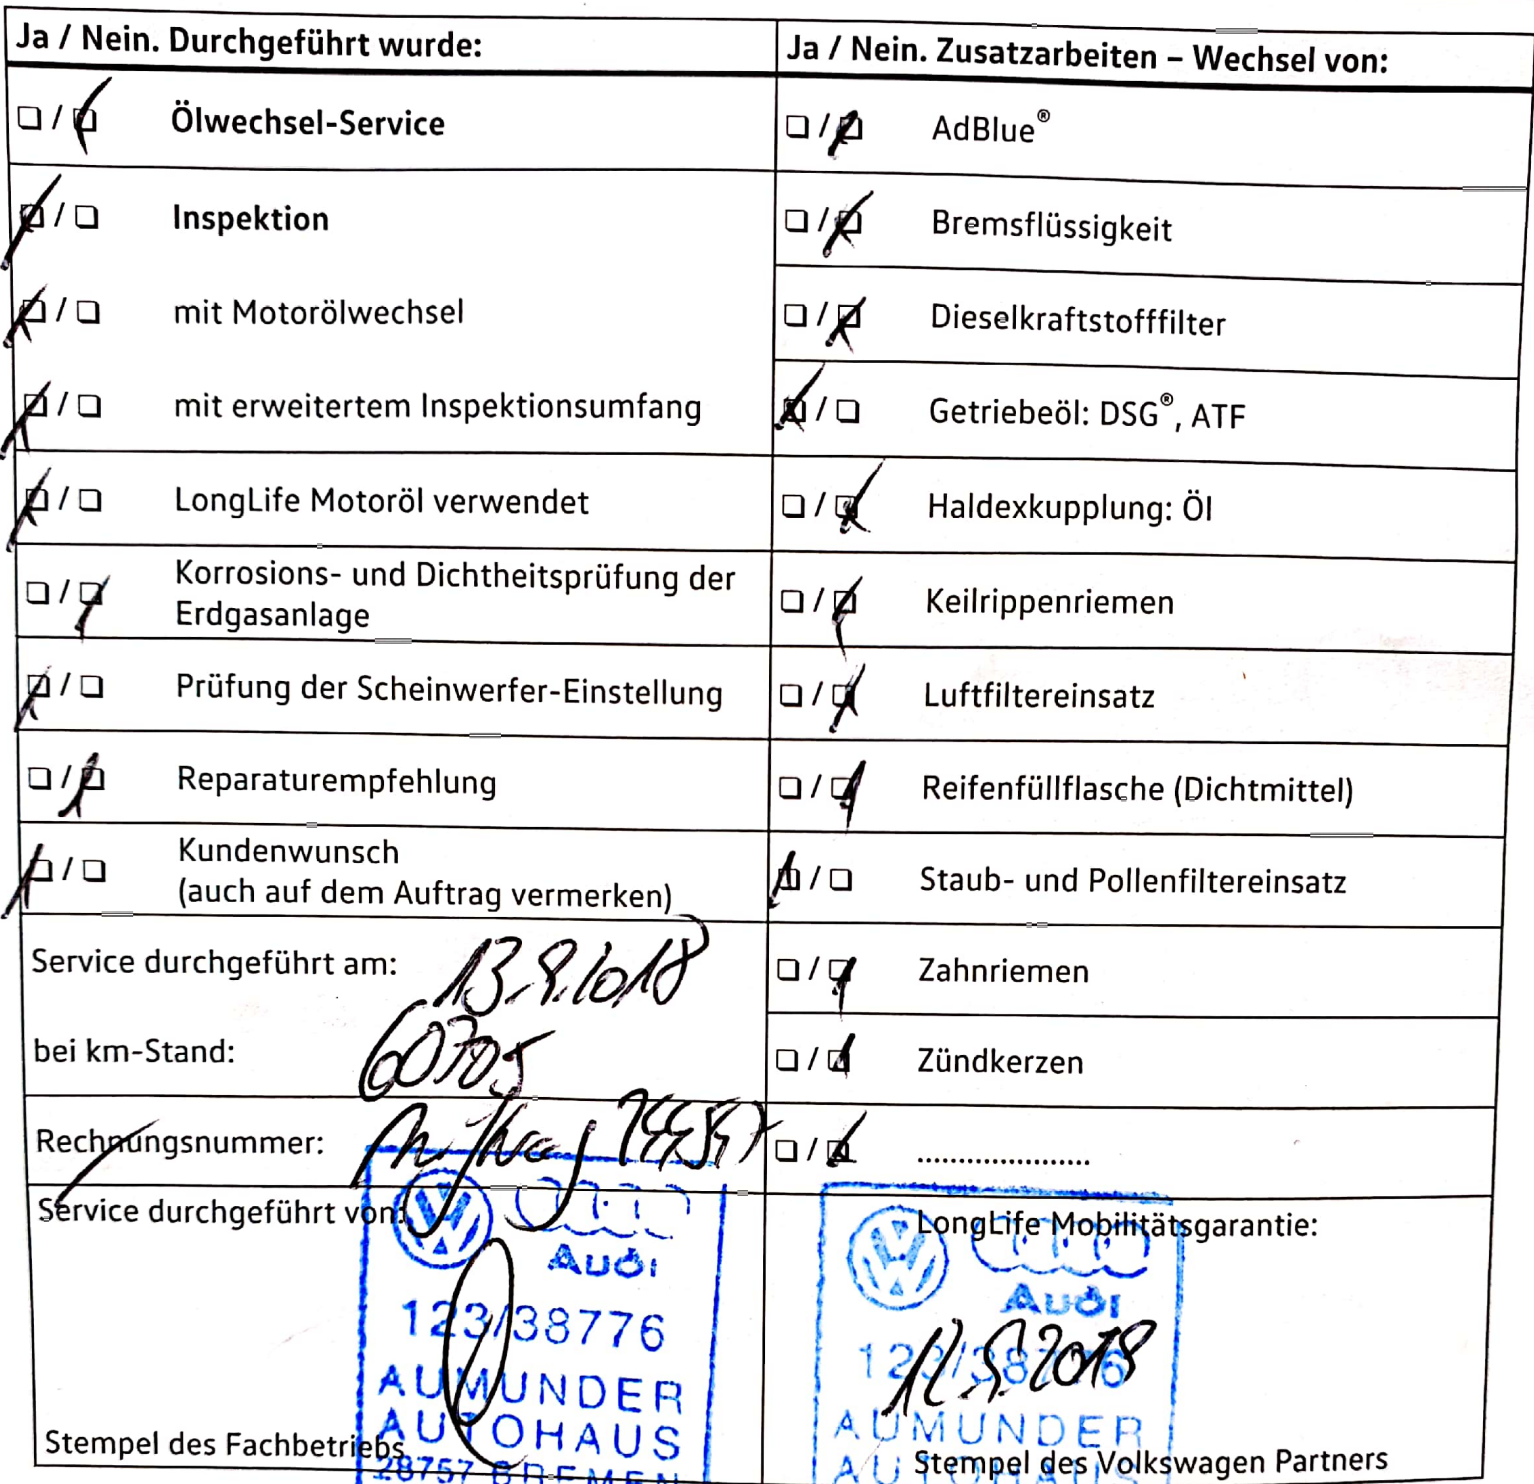 Ja / Nein. Durchgeführt wurde:
Ölwechsel-Service
Inspektion
mit Motorölwechsel
mit erweitertem Inspektionsumfang
LongLife Motoröl verwendet
Korrosions- und Dichtheitsprüfung der
Erdgasanlage
Prüfung der Scheinwerfer-Einstellung
Reparaturempfehlung
Kundenwunsch
(auch auf dem Auftrag vermerken)
Service durchgeführt am:
bei km-Stand: 60705
Rechnungsnummer:
Service durchgeführt von:
Audi
123/38776
AUMUNDER
AUTOHAUS
28757 BREMEN
Stempel des Fachbetriebs
Ja / Nein. Zusatzarbeiten – Wechsel von:
AdBlue®
Bremsflüssigkeit
Dieselkraftstofffilter
Getriebeöl: DSG®, ATF
Haldexkupplung: Öl
Keilrippenriemen
Luftfiltereinsatz
Reifenfüllflasche (Dichtmittel)
Staub- und Pollenfiltereinsatz
Zahnriemen
Zündkerzen
.....................
LongLife Mobilitätsgarantie:
Audi
123/38776
AUMUNDER
AUTOHAUS
Stempel des Volkswagen Partners